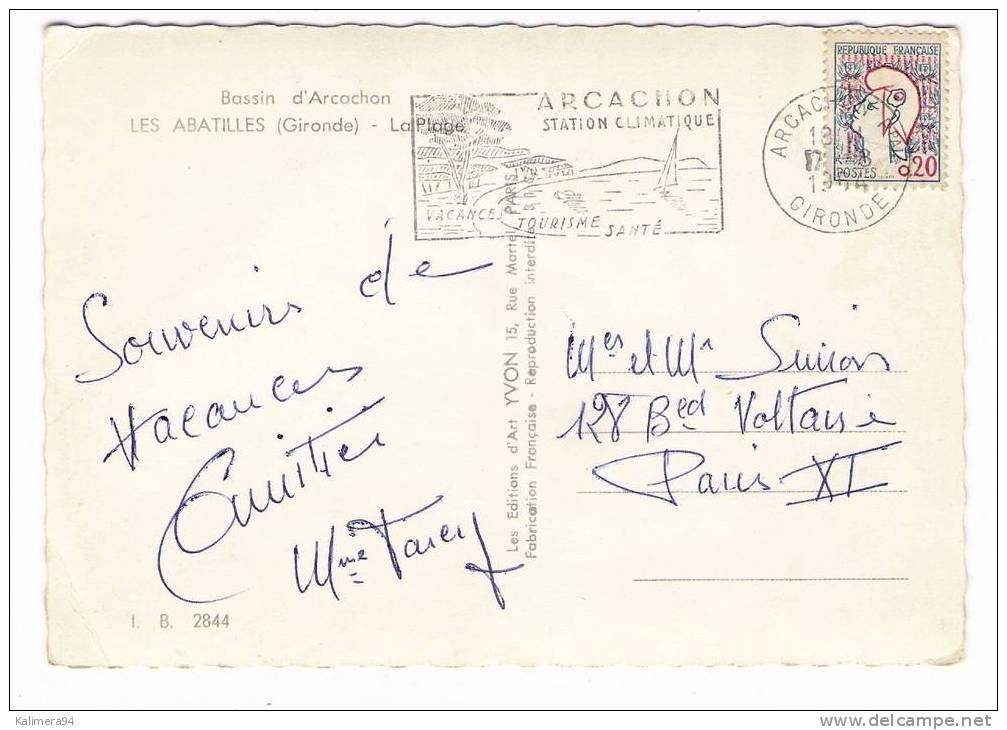 Bassin d'Arcachon
LES ABATILLES (Gironde) - La Plage
ARCACHON
STATION CLIMATIQUE
VACANCES TOURISME SANTÉ
ARCACHON
GIRONDE
REPUBLIQUE FRANÇAISE
POSTES
0,20
Souvenirs de
Vacances
Mme
Les Editions d'Art YVON 15, Rue Martel, PARIS
Fabrication Française - Reproduction interdite
Mes et Mr
128 Bed Voltaire
Paris XI
I. B. 2844
Kalimera94
www.delcampe.net